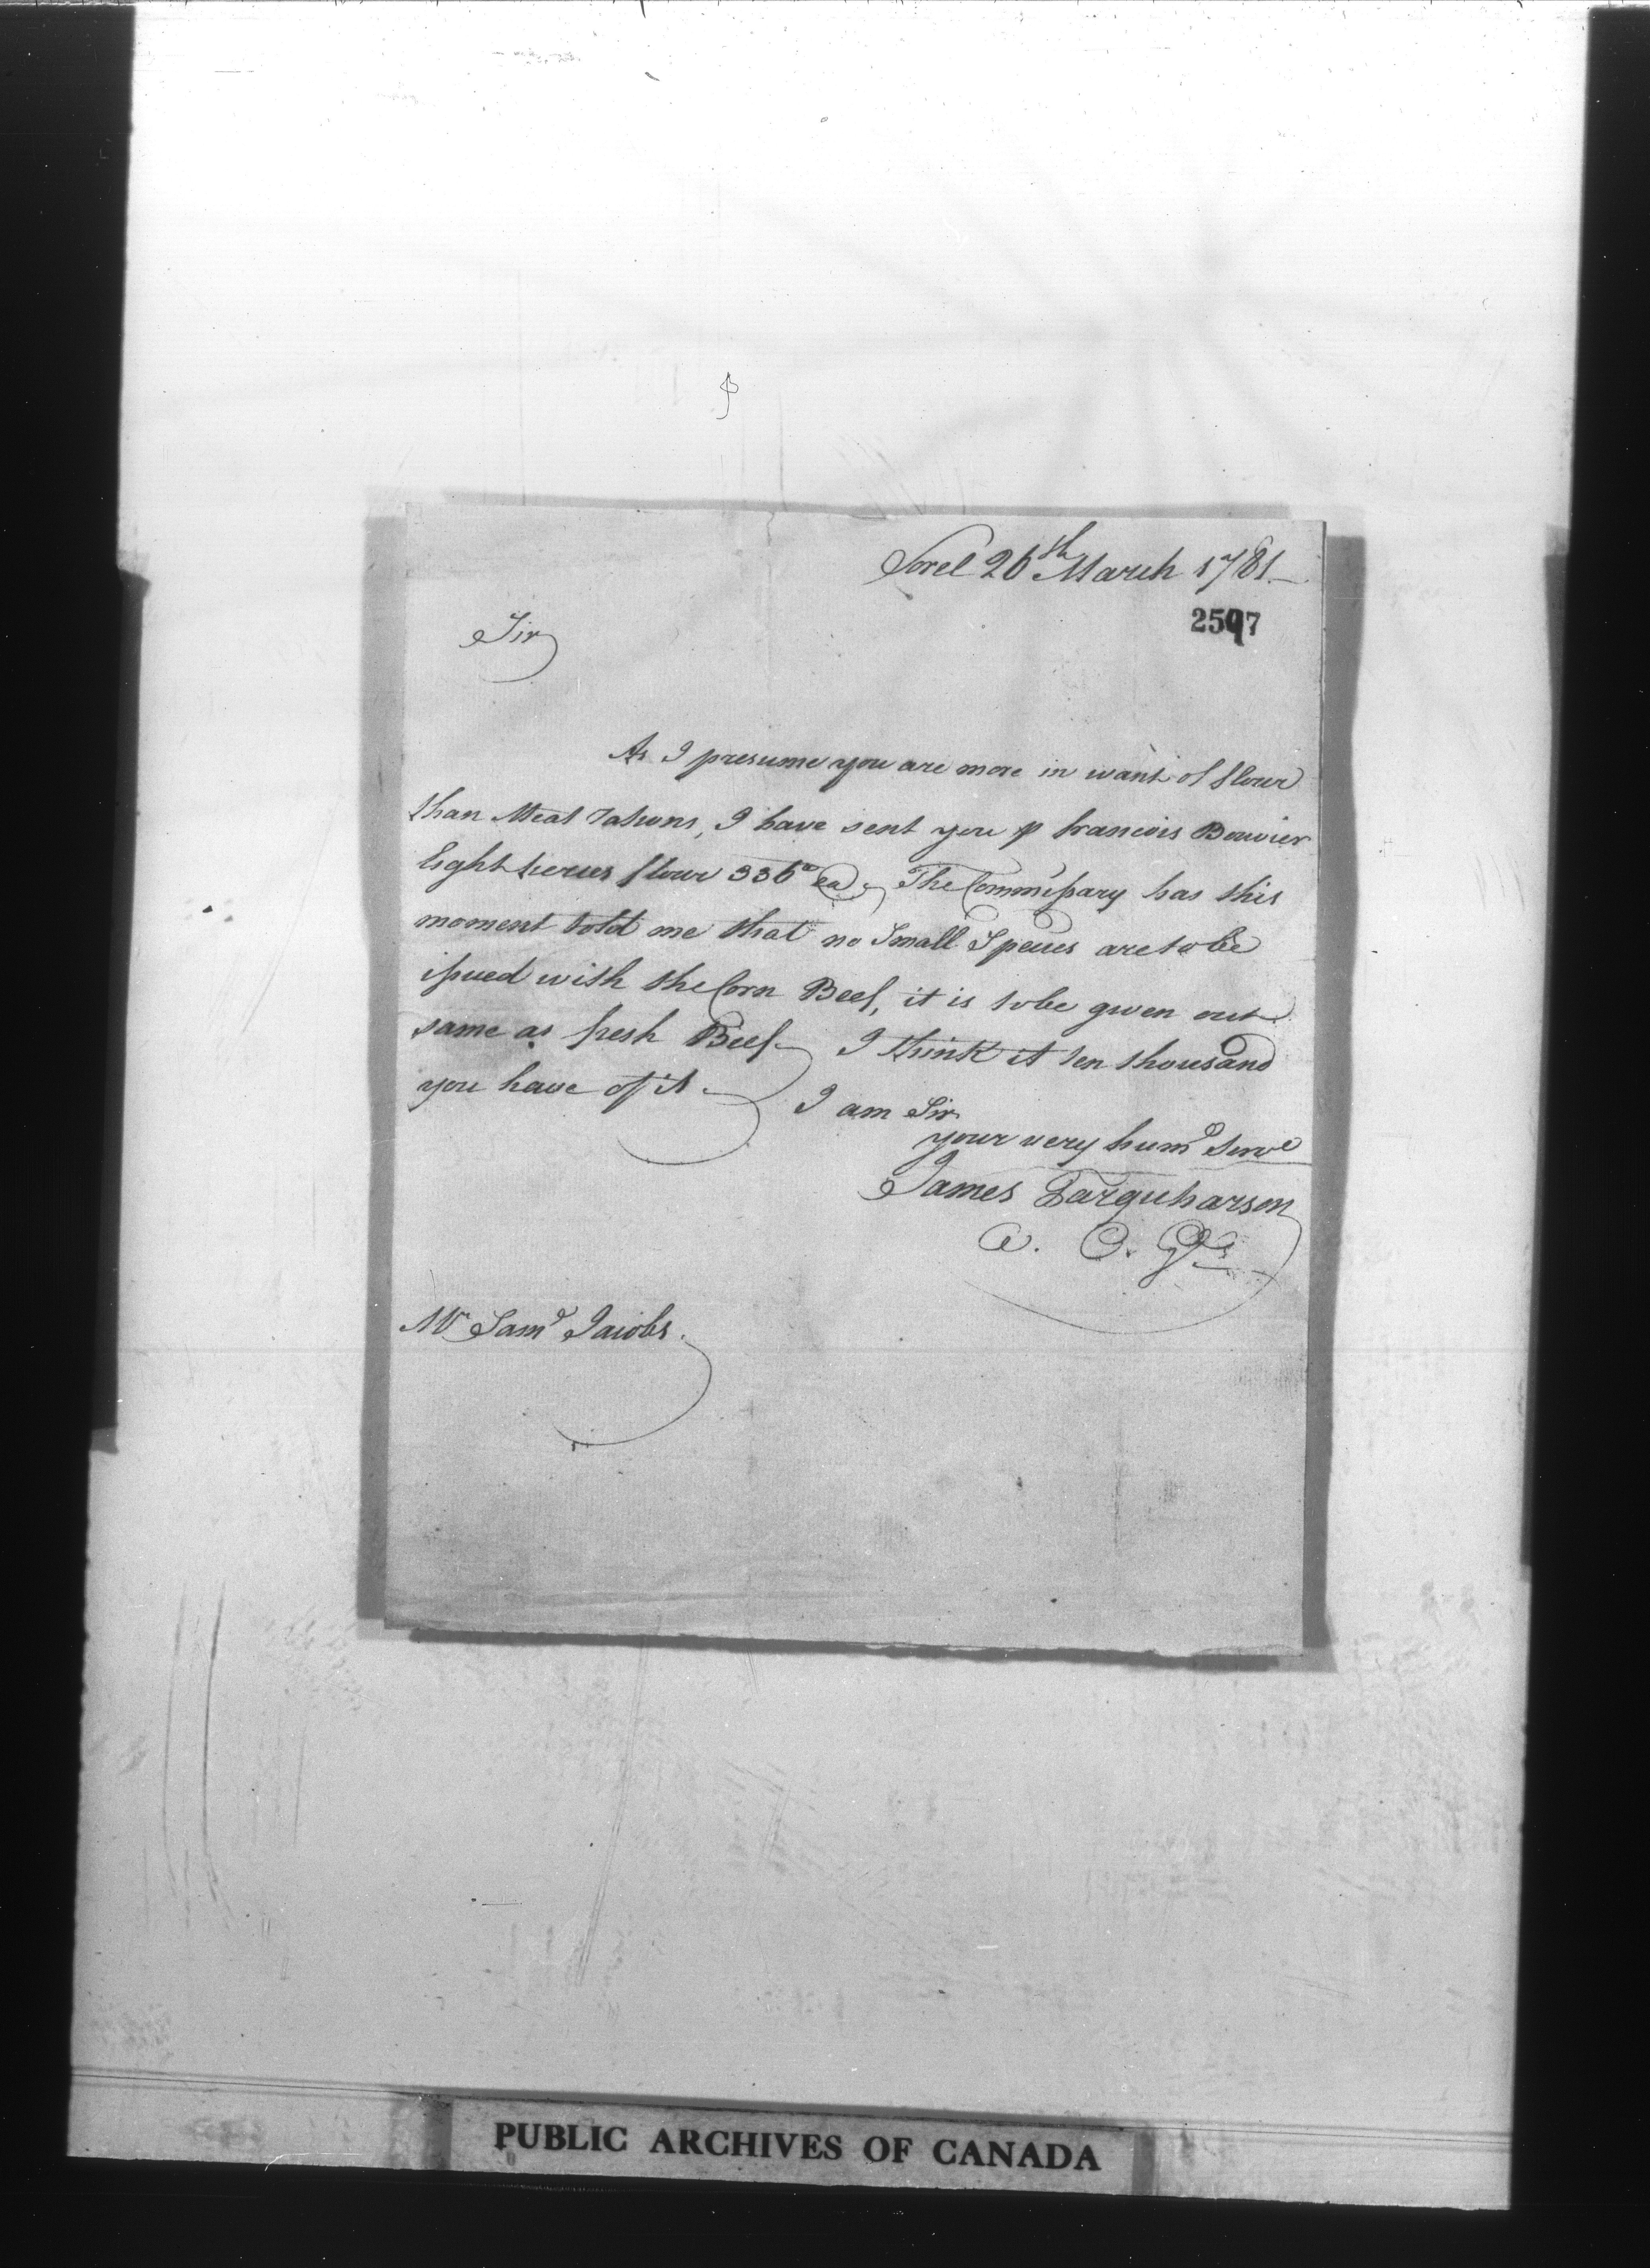 Sorel 26th March 1781.
2597
Sir
As I presume you are more in want of flour
than Meat rations, I have sent you p francois Bouvier
Eight tierces flour 336 ea. The Commissary has this
moment told me that no Small Speices are to be
issued with the Corn Beef, it is to be given out
same as fresh Beef I think it ten thousand
you have of it
I am Sir
your very hume Servt
James Farquharson
A. C. Gl
Mr Saml Jacobs.
PUBLIC ARCHIVES OF CANADA